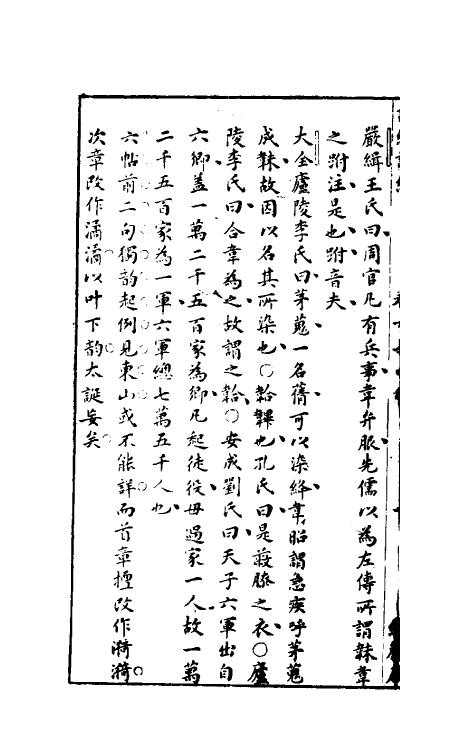 嚴緝王氏曰周官凡有兵事韋弁服先儒以為左傳所謂韎韋
之跗注是也跗音夫
大全廬陵李氏曰茅蒐一名蒨可以染絳韋昭謂急疾呼茅蒐
成韎故因以名其所染也○韐韠也孔氏曰是蔽膝之衣○廬
陵李氏曰合韋為之故謂之韐○安成劉氏曰天子六軍出自
六鄉蓋一萬二千五百家為鄉凡起徒役毋過家一人故一萬
二千五百家為一軍六軍總七萬五千人也
六帖前二句獨韵起例見東山或不能詳而首章擅改作漪漪
次章改作潏潏以叶下韵太誕妄矣